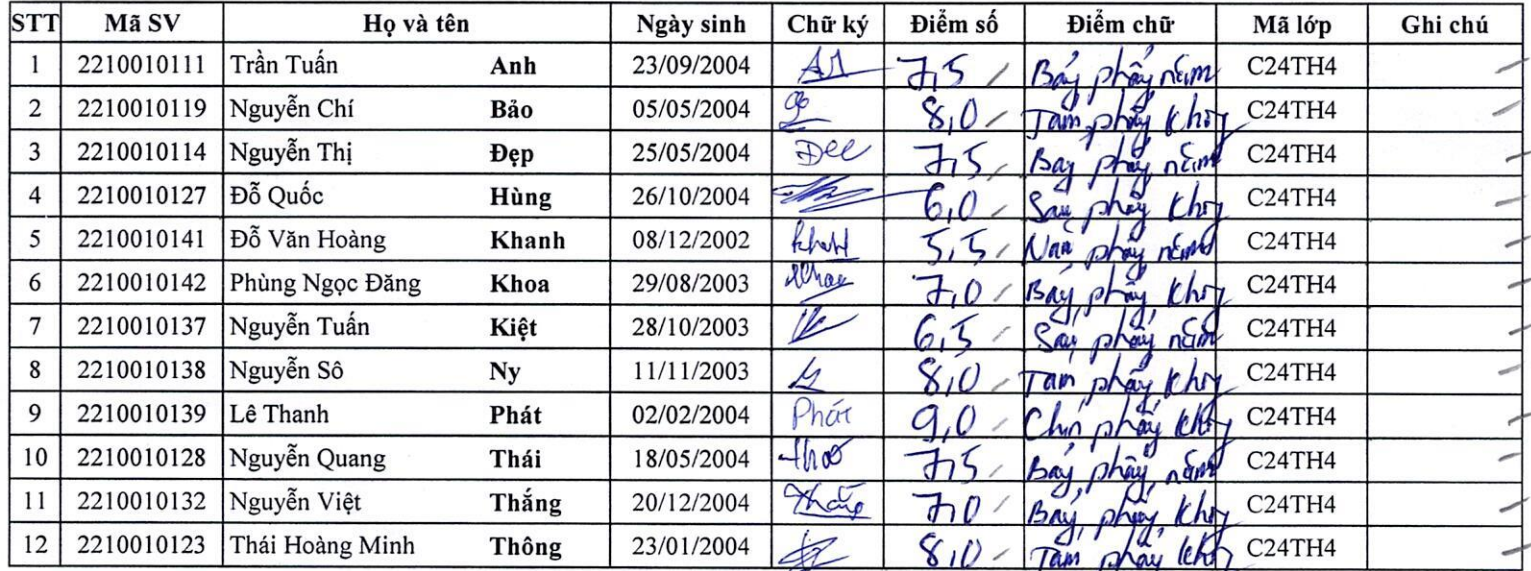 STT Mã SV Họ và tên Ngày sinh Chữ ký Điểm số Điểm chữ Mã lớp Ghi chú
1 2210010111 Trần Tuấn Anh 23/09/2004 7,5 Bảy phẩy năm C24TH4
2 2210010119 Nguyễn Chí Bảo 05/05/2004 8,0 Tám phẩy không C24TH4
3 2210010114 Nguyễn Thị Đẹp 25/05/2004 7,5 Bảy phẩy năm C24TH4
4 2210010127 Đỗ Quốc Hùng 26/10/2004 6,0 Sáu phẩy không C24TH4
5 2210010141 Đỗ Văn Hoàng Khanh 08/12/2002 5,5 Năm phẩy năm C24TH4
6 2210010142 Phùng Ngọc Đăng Khoa 29/08/2003 7,0 Bảy phẩy không C24TH4
7 2210010137 Nguyễn Tuấn Kiệt 28/10/2003 6,5 Sáu phẩy năm C24TH4
8 2210010138 Nguyễn Sô Ny 11/11/2003 8,0 Tám phẩy không C24TH4
9 2210010139 Lê Thanh Phát 02/02/2004 Phát 9,0 Chín phẩy không C24TH4
10 2210010128 Nguyễn Quang Thái 18/05/2004 7,5 Bảy phẩy năm C24TH4
11 2210010132 Nguyễn Việt Thắng 20/12/2004 Thắng 7,0 Bảy phẩy không C24TH4
12 2210010123 Thái Hoàng Minh Thông 23/01/2004 8,0 Tám phẩy không C24TH4